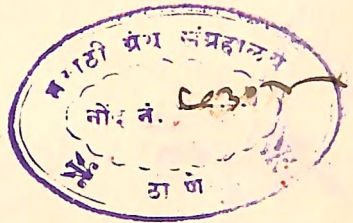 मराठी ग्रंथ संग्रहालय
नोंद नं.
ठाणे